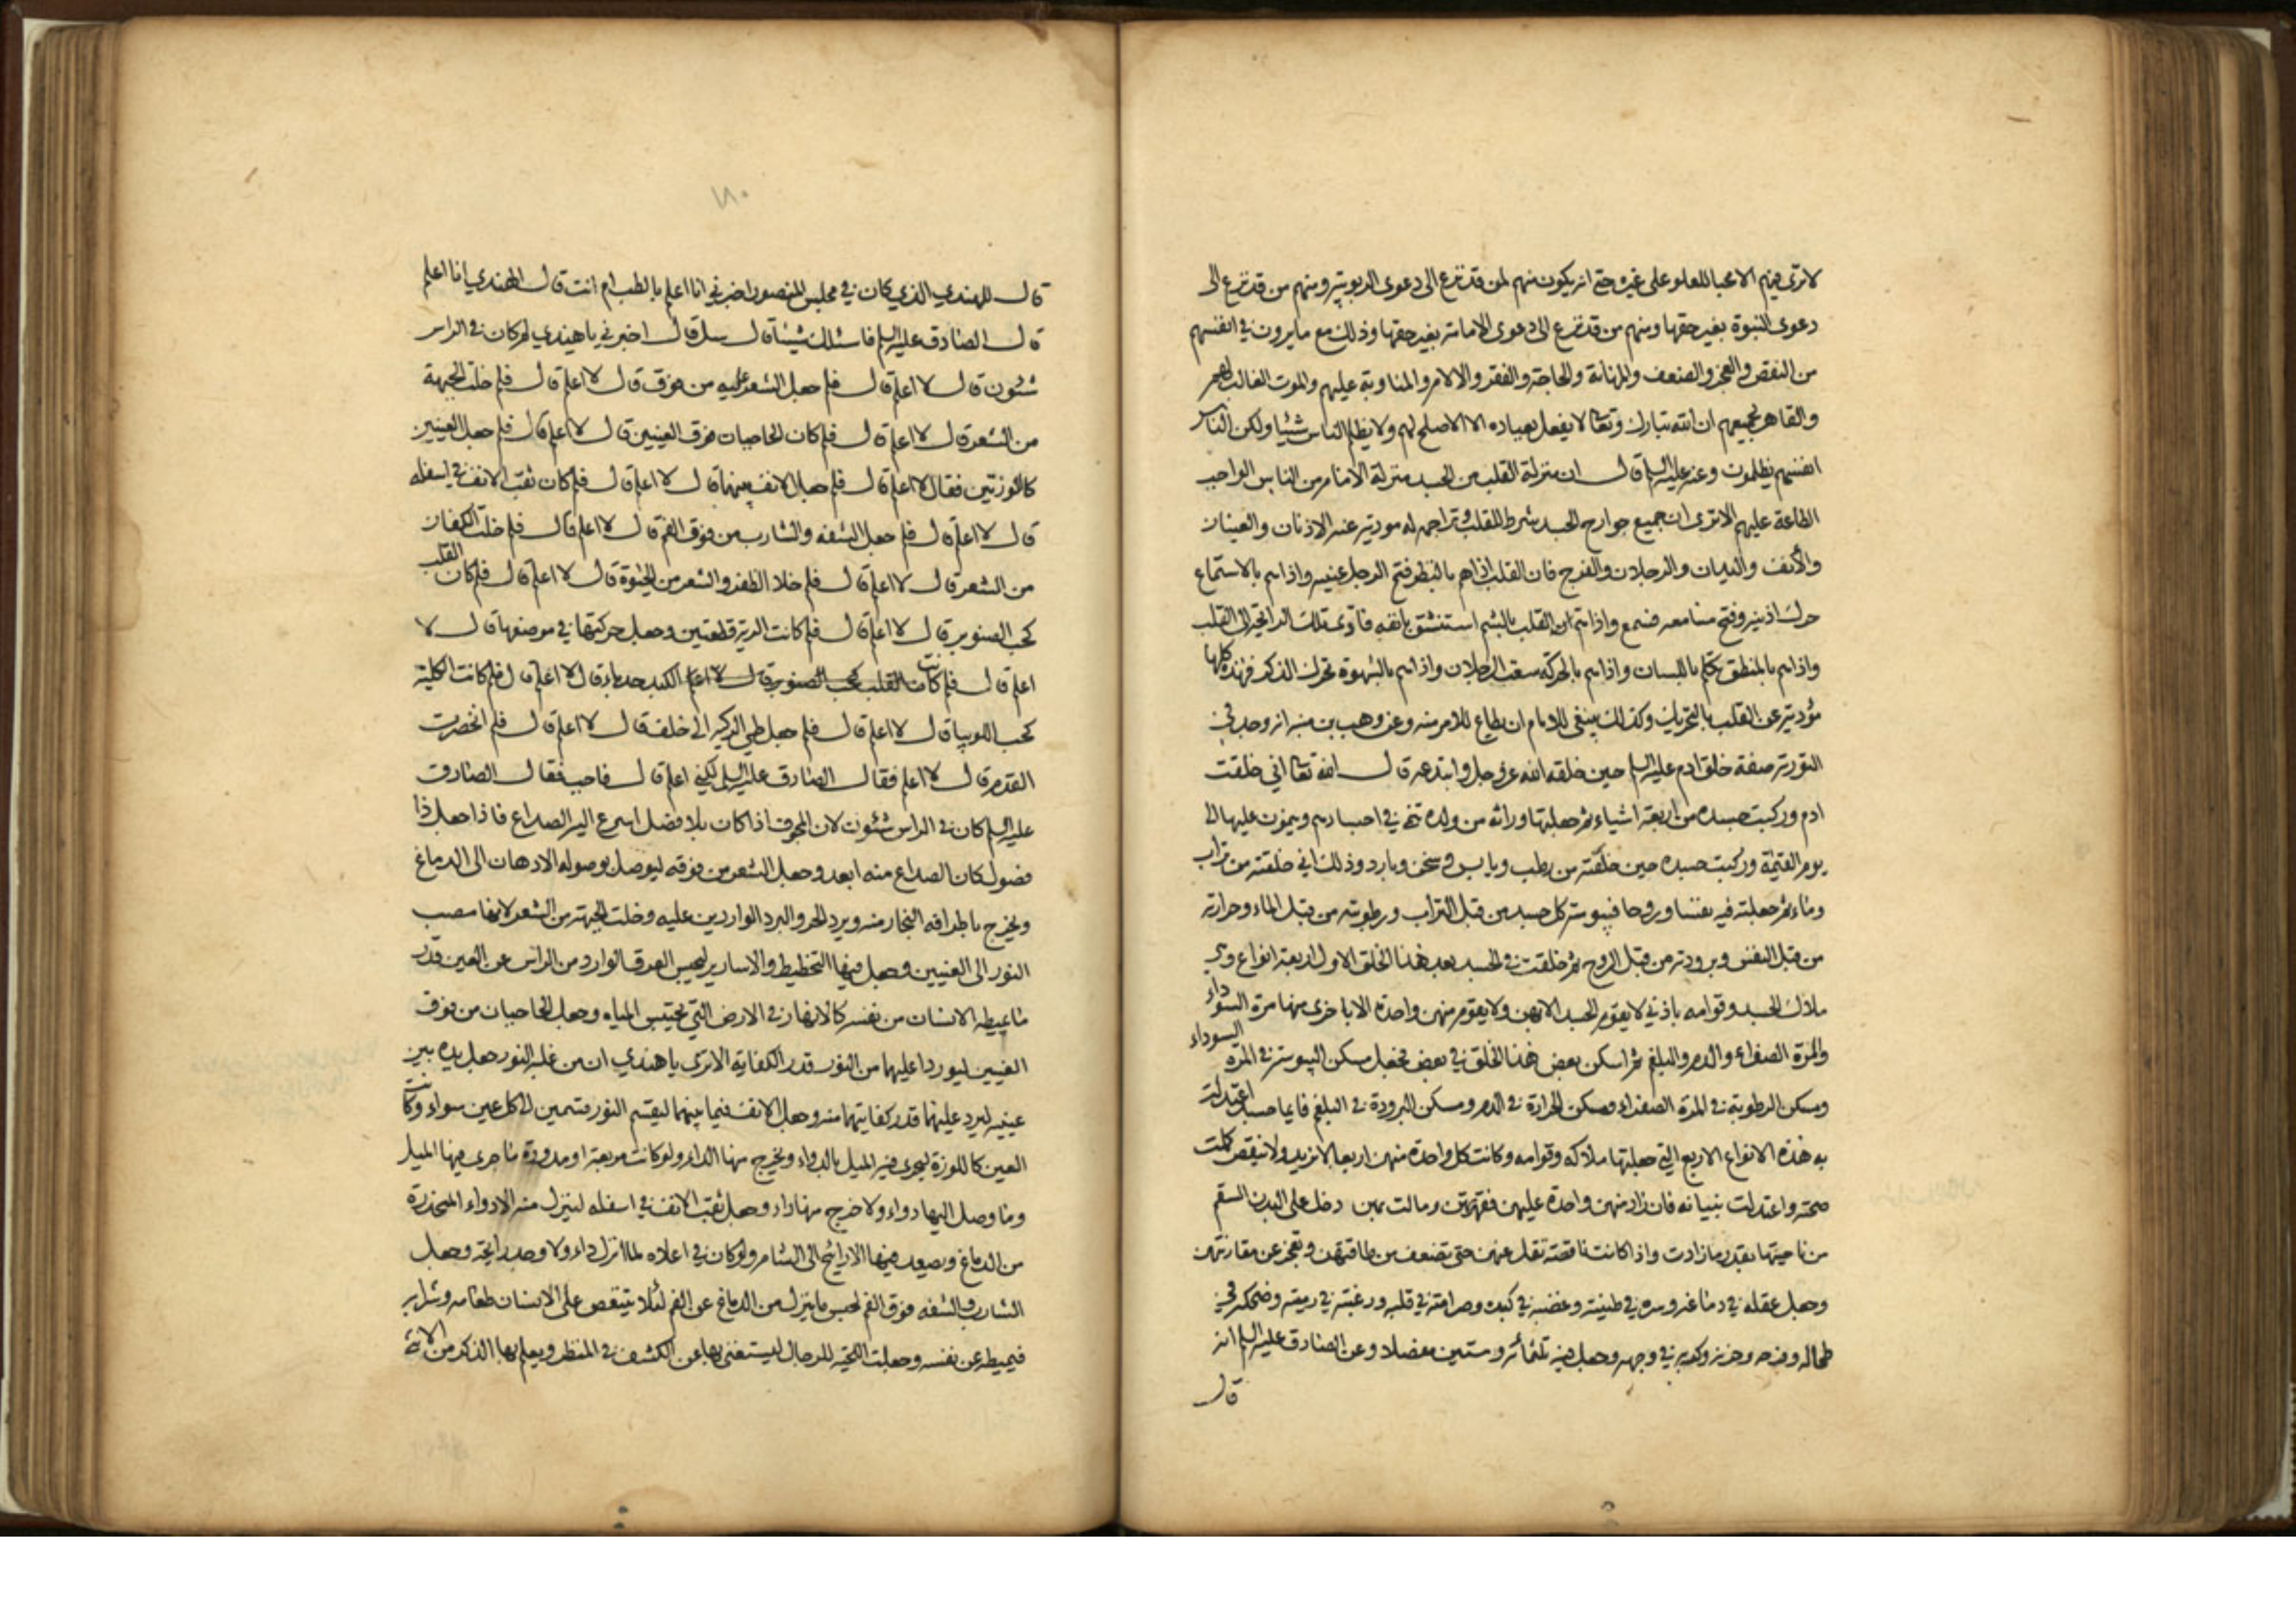 لا ترى فيهم الا محبا للعلو على غيره حتى انه يكون منهم لمن قد نزع الى دعوى الربوبية ومنهم من قد نزع الى
دعوى النبوة بغير حقها ومنهم من قد نزع الى دعوى الامامة بغير حقها وذلك مع ما يرون في انفسهم
من النقص والعجز والضعف والمهانة والحاجة والفقر والالام والمناوبة عليهم والموت الغالب لهم
والقاهر لجميعهم ان الله تبارك وتعا لا يفعل بعباده الا الاصلح لهم ولا يظلم الناس شيئا ولكن الناس
انفسهم يظلمون وعنه عليه السلم قال ان منزلة القلب من الجسد منزلة الامام من الناس الواجب
الطاعة عليهم الا ترى ان جميع جوارح الجسد شرط للقلب وتراجمه له مودية عنه الاذنان والعينان
والأنف واليدان والرجلان والفرج فان القلب اذا هم بالنظر فتح الرجل عينيه واذا هم بالاستماع
حرك اذنيه وفتح مسامعه فسمع واذا هم القلب بالشم استنشق بانفه فادى تلك الرائحة الى القلب
واذا هم بالمنطق تكلم باللسان واذا هم بالحركة سعت الرجلان واذا هم بالشهوة تحرك الذكر فهذه كلها
مؤدية عن القلب بالتحريك وكذلك ينبغى للامام ان يطاع للامر منه وعن وهب بن منبه انه وجد في
التورية صفة خلق ادم عليه السلم حين خلقه الله عز وجل وابتدعه قال الله تعا اني خلقت
ادم وركبت جسده من اربعة اشياء ثم جعلتها وراثة من ولده تنمى في اجسادهم وينمون عليها الى
يوم القيمة وركبت جسده حين خلقته من رطب ويابس وسخن وبارد وذلك اني خلقته من تراب
وماء ثم جعلت فيه نفسا وروحا فيبوسة كل جسد من قبل التراب ورطوبته من قبل الماء وحرارته
من قبل النفس وبرودته من قبل الروح ثم خلقت في الجسد بعد هذا الخلق الاول اربعة انواع وهي
ملاك الجسد وقوامه باذني لا يقوم الجسد الا بهن ولا يقوم منهن واحدة الا باخرى منها مرة السوداء
والمرة الصفراء والدم والبلغم ثم اسكن بعض هذا الخلق في بعض فجعل مسكن اليبوسة في المرة السوداء
ومسكن الرطوبة في المرة الصفراء ومسكن الحرارة في الدم ومسكن البرودة في البلغم فايما جسد اعتدلت
به هذه الانواع الاربع التي جعلتها ملاكه وقوامه وكانت كل واحدة منهن اربعا لا تزيد ولا تنقص كملت
صحته واعتدلت بنيانه فان زاد منهن واحدة عليهن فقهرتهن ومالت بهن دخل على البدن السقم
من ناحيتها بقدر ما زادت واذا كانت ناقصة تقل عنهن حتى تضعف من طاقتهن وتعجز عن مقارنتهن
وجعل عقله في دماغه وسره في طينته وغضبه في كبده وصرامته في قلبه ورغبته في ريته وضحكه في
طحاله وفرحه وحزنه وكربه في وجهه وجعل فيه ثلثمائة وستين مفصلا وعن الصادق عليه السلم انه
قال
١٨٠
قال للهندي الذي كان في مجلس المنصور اخبرني انا اعلم بالطب ام انت قال الهندي انا اعلم
قال الصادق عليه السلم فاسئلك شيئا قال سل قال اخبرني يا هندي لم كان في الراس
شئون قال لا اعلم قال فلم جعل الشعر عليه من فوق قال لا اعلم قال فلم خلت الجبهة
من الشعر قال لا اعلم قال فلم كان الحاجبان فوق العينين قال لا اعلم قال فلم جعل العينين
كاللوزتين فقال لا اعلم قال فلم جعل الانف بينهما قال لا اعلم قال فلم كان ثقب الانف في اسفله
قال لا اعلم قال فلم جعل الشفه والشارب من فوق الفم قال لا اعلم قال فلم خلت الكفان
من الشعر قال لا اعلم قال فلم خلا الظفر والشعر من الحيوة قال لا اعلم قال فلم كان القلب
كحب الصنوبر قال لا اعلم قال فلم كانت الرية قطعتين وجعل حركتها في موضعها قال لا
اعلم قال فلم كانت القلب كحب الصنوبر قال لا اعلم الكبد حدباء قال لا اعلم قال فلم كانت الكلية
كحب اللوبيا قال لا اعلم قال فلم جعل طي الركبة الى خلف قال لا اعلم قال فلم انخصرت
القدم قال لا اعلم فقال الصادق عليه السلم لكني اعلم قال فاجب فقال الصادق
عليه السلم كان في الراس شئون لان المجوف اذا كان بلا فصل اسرع اليه الصداع فاذا جعل ذا
فصول كان الصداع منه ابعد وجعل الشعر من فوقه ليوصل بوصوله الادهان الى الدماغ
ويخرج باطرافه البخار منه ويرد الحر والبرد الواردين عليه وخلت الجبهة من الشعر لانها مصب
النور الى العينين وجعل فيها التخطيط والاسارير ليحبس العرق الوارد من الراس عن العين قدر
ما يميطه الانسان من نفسه كالانهار في الارض التي تحتبس المياه وجعل الحاجبان من فوق
العينين ليوردا عليهما من النور قدر الكفاية الا ترى يا هندي ان من غلبه النور جعل يده بين
عينيه ليرد عليهما قدر كفايتهما منه وجعل الانف فيما بينهما ليقسم النور قسمين الى كل عين سواء وكانت
العين كاللوزة ليجرى فيه الميل بالدواء ويخرج منها الداء ولو كانت مربعة او مدورة ما جرى فيها الميل
وما وصل اليها دواء ولا خرج منها داء وجعل ثقب الانف في اسفله لينزل منه الادواء المتحدرة
من الدماغ ويصعد فيها الاراييح الى المشام ولو كان في اعلاه لما انزل داء ولا وجد رايحة وجعل
الشارب والشفه فوق الفم لحبس ما ينزل من الدماغ عن الفم لئلا يتنغص على الانسان طعامه وشرابه
فيميطه عن نفسه وجعلت اللحية للرجال ليستغنى بها عن الكشف في المنظر ويعلم بها الذكر من الانثى